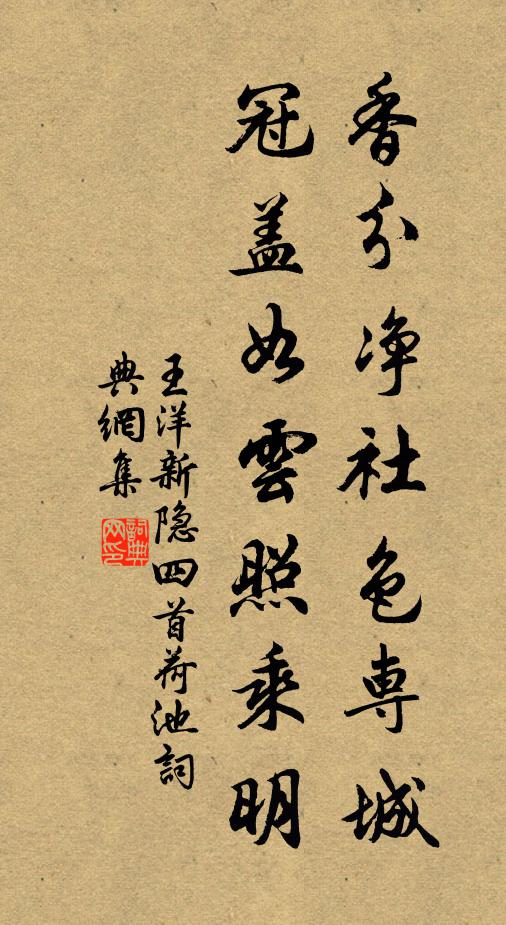 香分净社色専城
冠盖如雲照乘明
王洋新隐四首荷池詞
典網集
詞典
网印